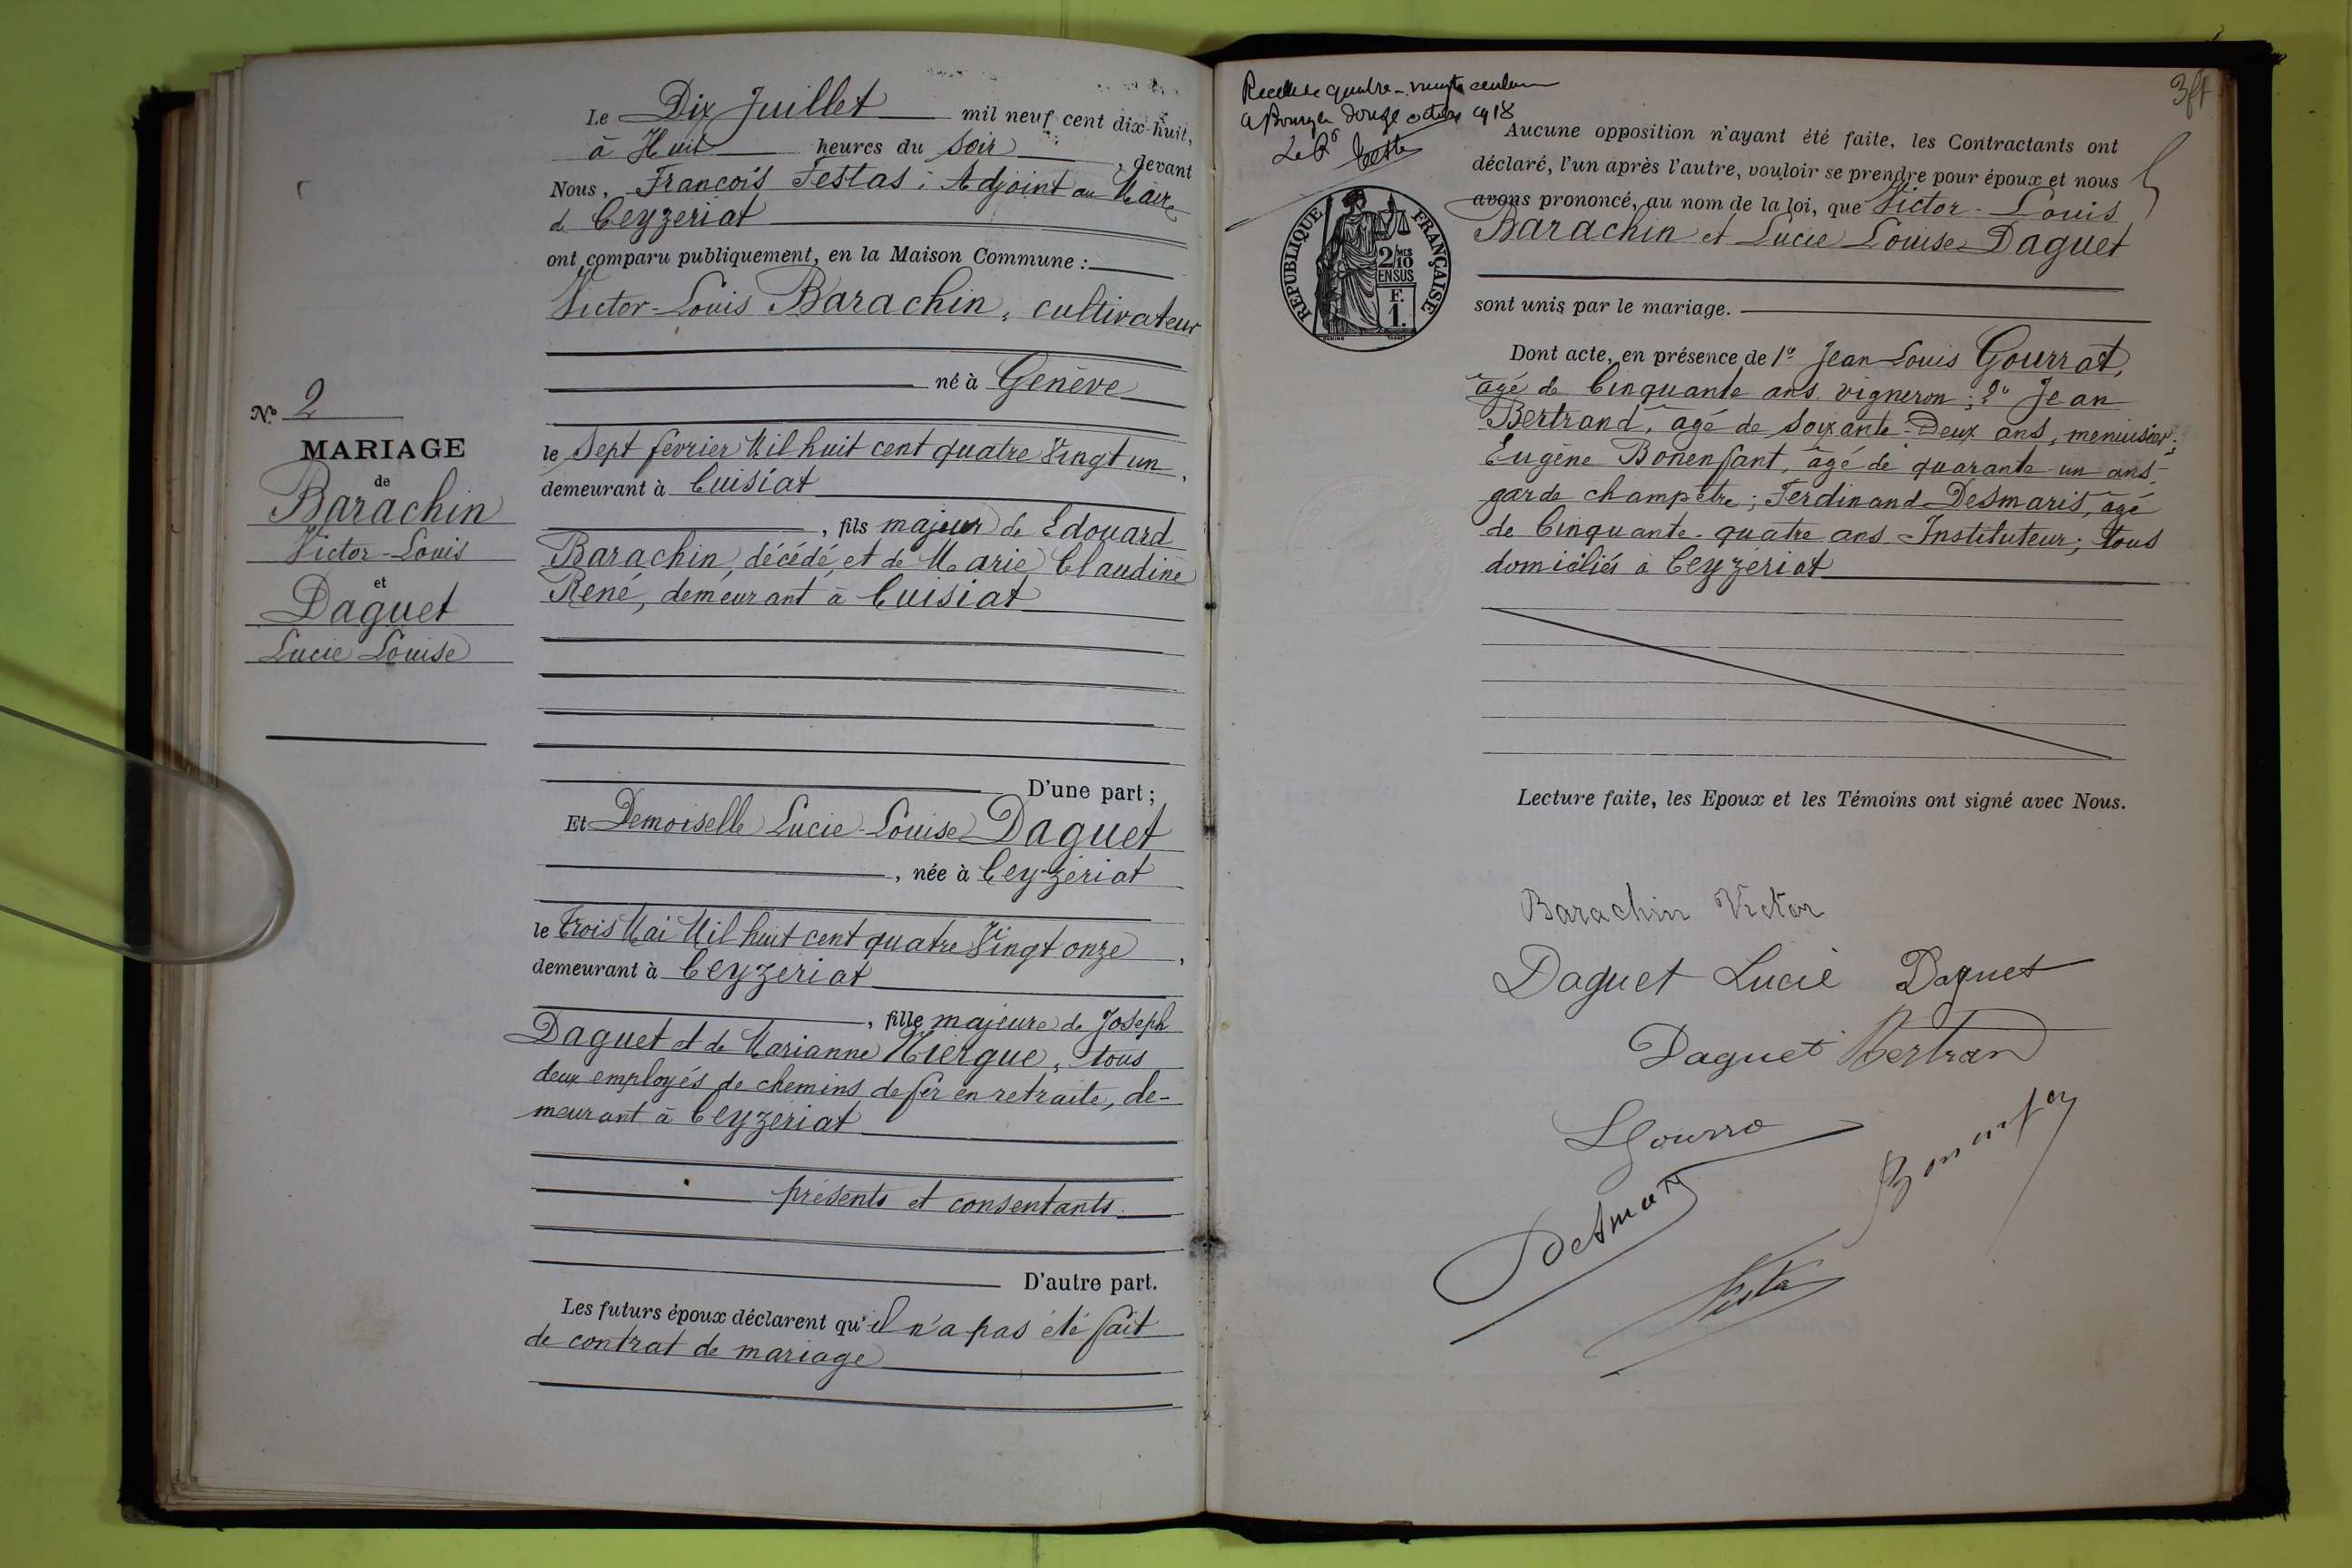 Le Dix Juillet mil neuf cent dix-huit,
à Huit heures du Soir, devant
Nous, François Festas, Adjoint au Maire
de Ceyzériat
ont comparu publiquement, en la Maison Commune :
Victor-Louis Barachin, cultivateur
né à Genève
le Sept février Mil huit cent quatre Vingt un,
demeurant à Cuisiat
, fils majeur de Edouard
Barachin, décédé, et de Marie Claudine
René, demeurant à Cuisiat
D'une part ;
Et Demoiselle Lucie-Louise Daguet
, née à Ceyzériat
le Trois Mai Mil huit cent quatre Vingt onze,
demeurant à Ceyzériat
, fille majeure de Joseph
Daguet et de Marianne, tous
deux employés de chemins de fer en retraite, de-
meurant à Ceyzériat
présents et consentants.
D'autre part.
Les futurs époux déclarent qu'il n'a pas été fait
de contrat de mariage
N° 2
MARIAGE
de
Barachin
Victor-Louis
et
Daguet
Lucie Louise
quatre-vingts
à Bourg le douze octobre 1918
Le
RÉPUBLIQUE FRANÇAISE
2/10MES
EN SUS
F.
1.
Aucune opposition n'ayant été faite, les Contractants ont
déclaré, l'un après l'autre, vouloir se prendre pour époux et nous
avons prononcé, au nom de la loi, que Victor-Louis
Barachin et Lucie Louise Daguet
sont unis par le mariage.
Dont acte, en présence de 1° Jean Louis Gourrat,
âgé de Cinquante ans, vigneron ; 2° Jean
Bertrand, âgé de soixante-Deux ans, menuisier ;
Eugène Bonenfant, âgé de quarante-un ans,
garde champêtre ; Ferdinand Desmaris, âgé
de Cinquante-quatre ans Instituteur ; tous
domiciliés à Ceyzériat
Lecture faite, les Epoux et les Témoins ont signé avec Nous.
Barachin Victor
Daguet Lucie Daguet
Daguet Bertrand